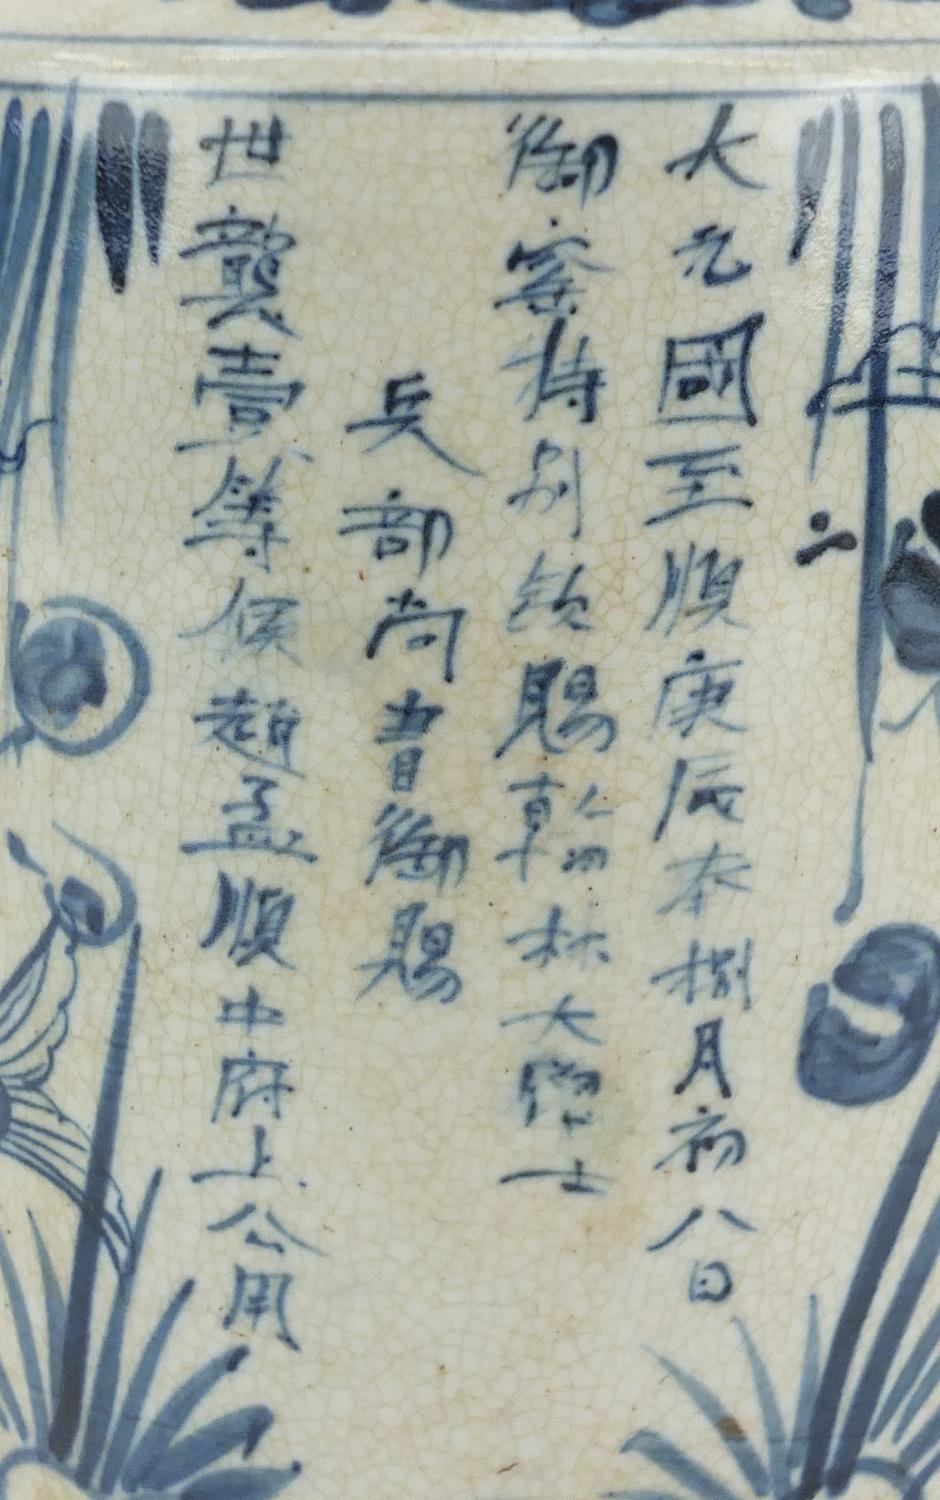 大元國至順庚辰春捌月初八日
御窑特别敕賜翰林大學士
兵部尚書御賜
世襲壹等侯趙孟順中府上公用